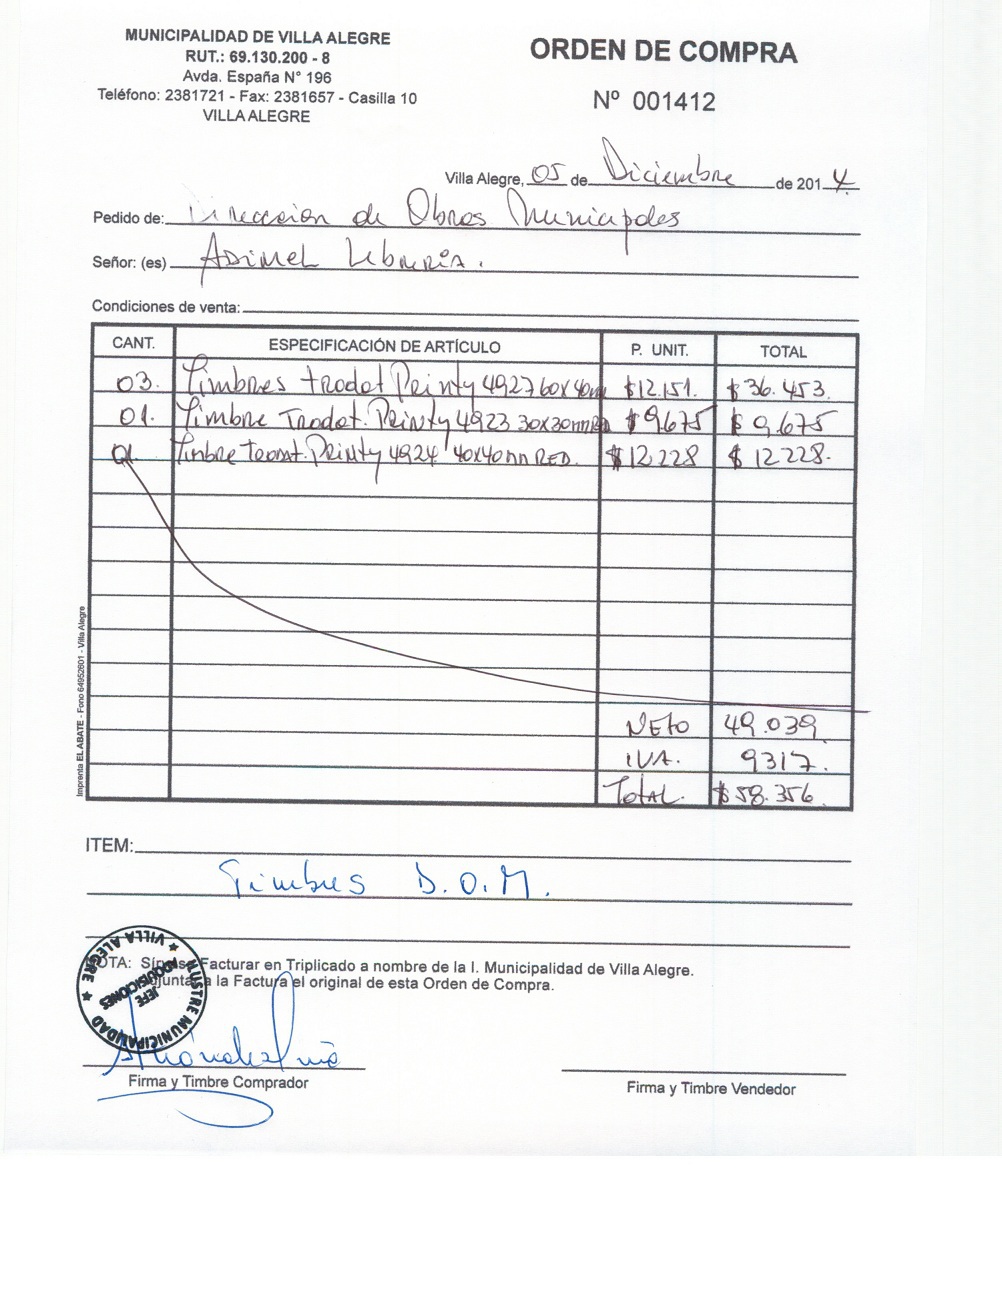 MUNICIPALIDAD DE VILLA ALEGRE
RUT.: 69.130.200 - 8
Avda. España N° 196
Teléfono: 2381721 - Fax: 2381657 - Casilla 10
VILLA ALEGRE
ORDEN DE COMPRA
Nº 001412
Villa Alegre, 05 de Diciembre de 2014
Pedido de: Dirección de Obras Municipales
Señor: (es) Adimel Librería.
Condiciones de venta:
CANT. ESPECIFICACIÓN DE ARTÍCULO P. UNIT. TOTAL
03. Timbres trodat Printy 4927 60x40mm $12.151. $36.453.
01. Timbre Trodat. Printy 4923 30x30mm RED $9.675 $9.675
01. Timbre Trodat. Printy 4924 40x40mm RED. $12.228 $12.228.
NETO 49.039
IVA. 9317.
TOTAL. $58.356
ITEM:
Timbres D.O.M.
NOTA: Sírvase Facturar en Triplicado a nombre de la I. Municipalidad de Villa Alegre.
Adjuntar a la Factura el original de esta Orden de Compra.
ILUSTRE MUNICIPALIDAD ★ VILLA ALEGRE ★
JEFE
ADQUISICIONES
Firma y Timbre Comprador
Firma y Timbre Vendedor
Imprenta EL ABATE - Fono 64952601 - Villa Alegre